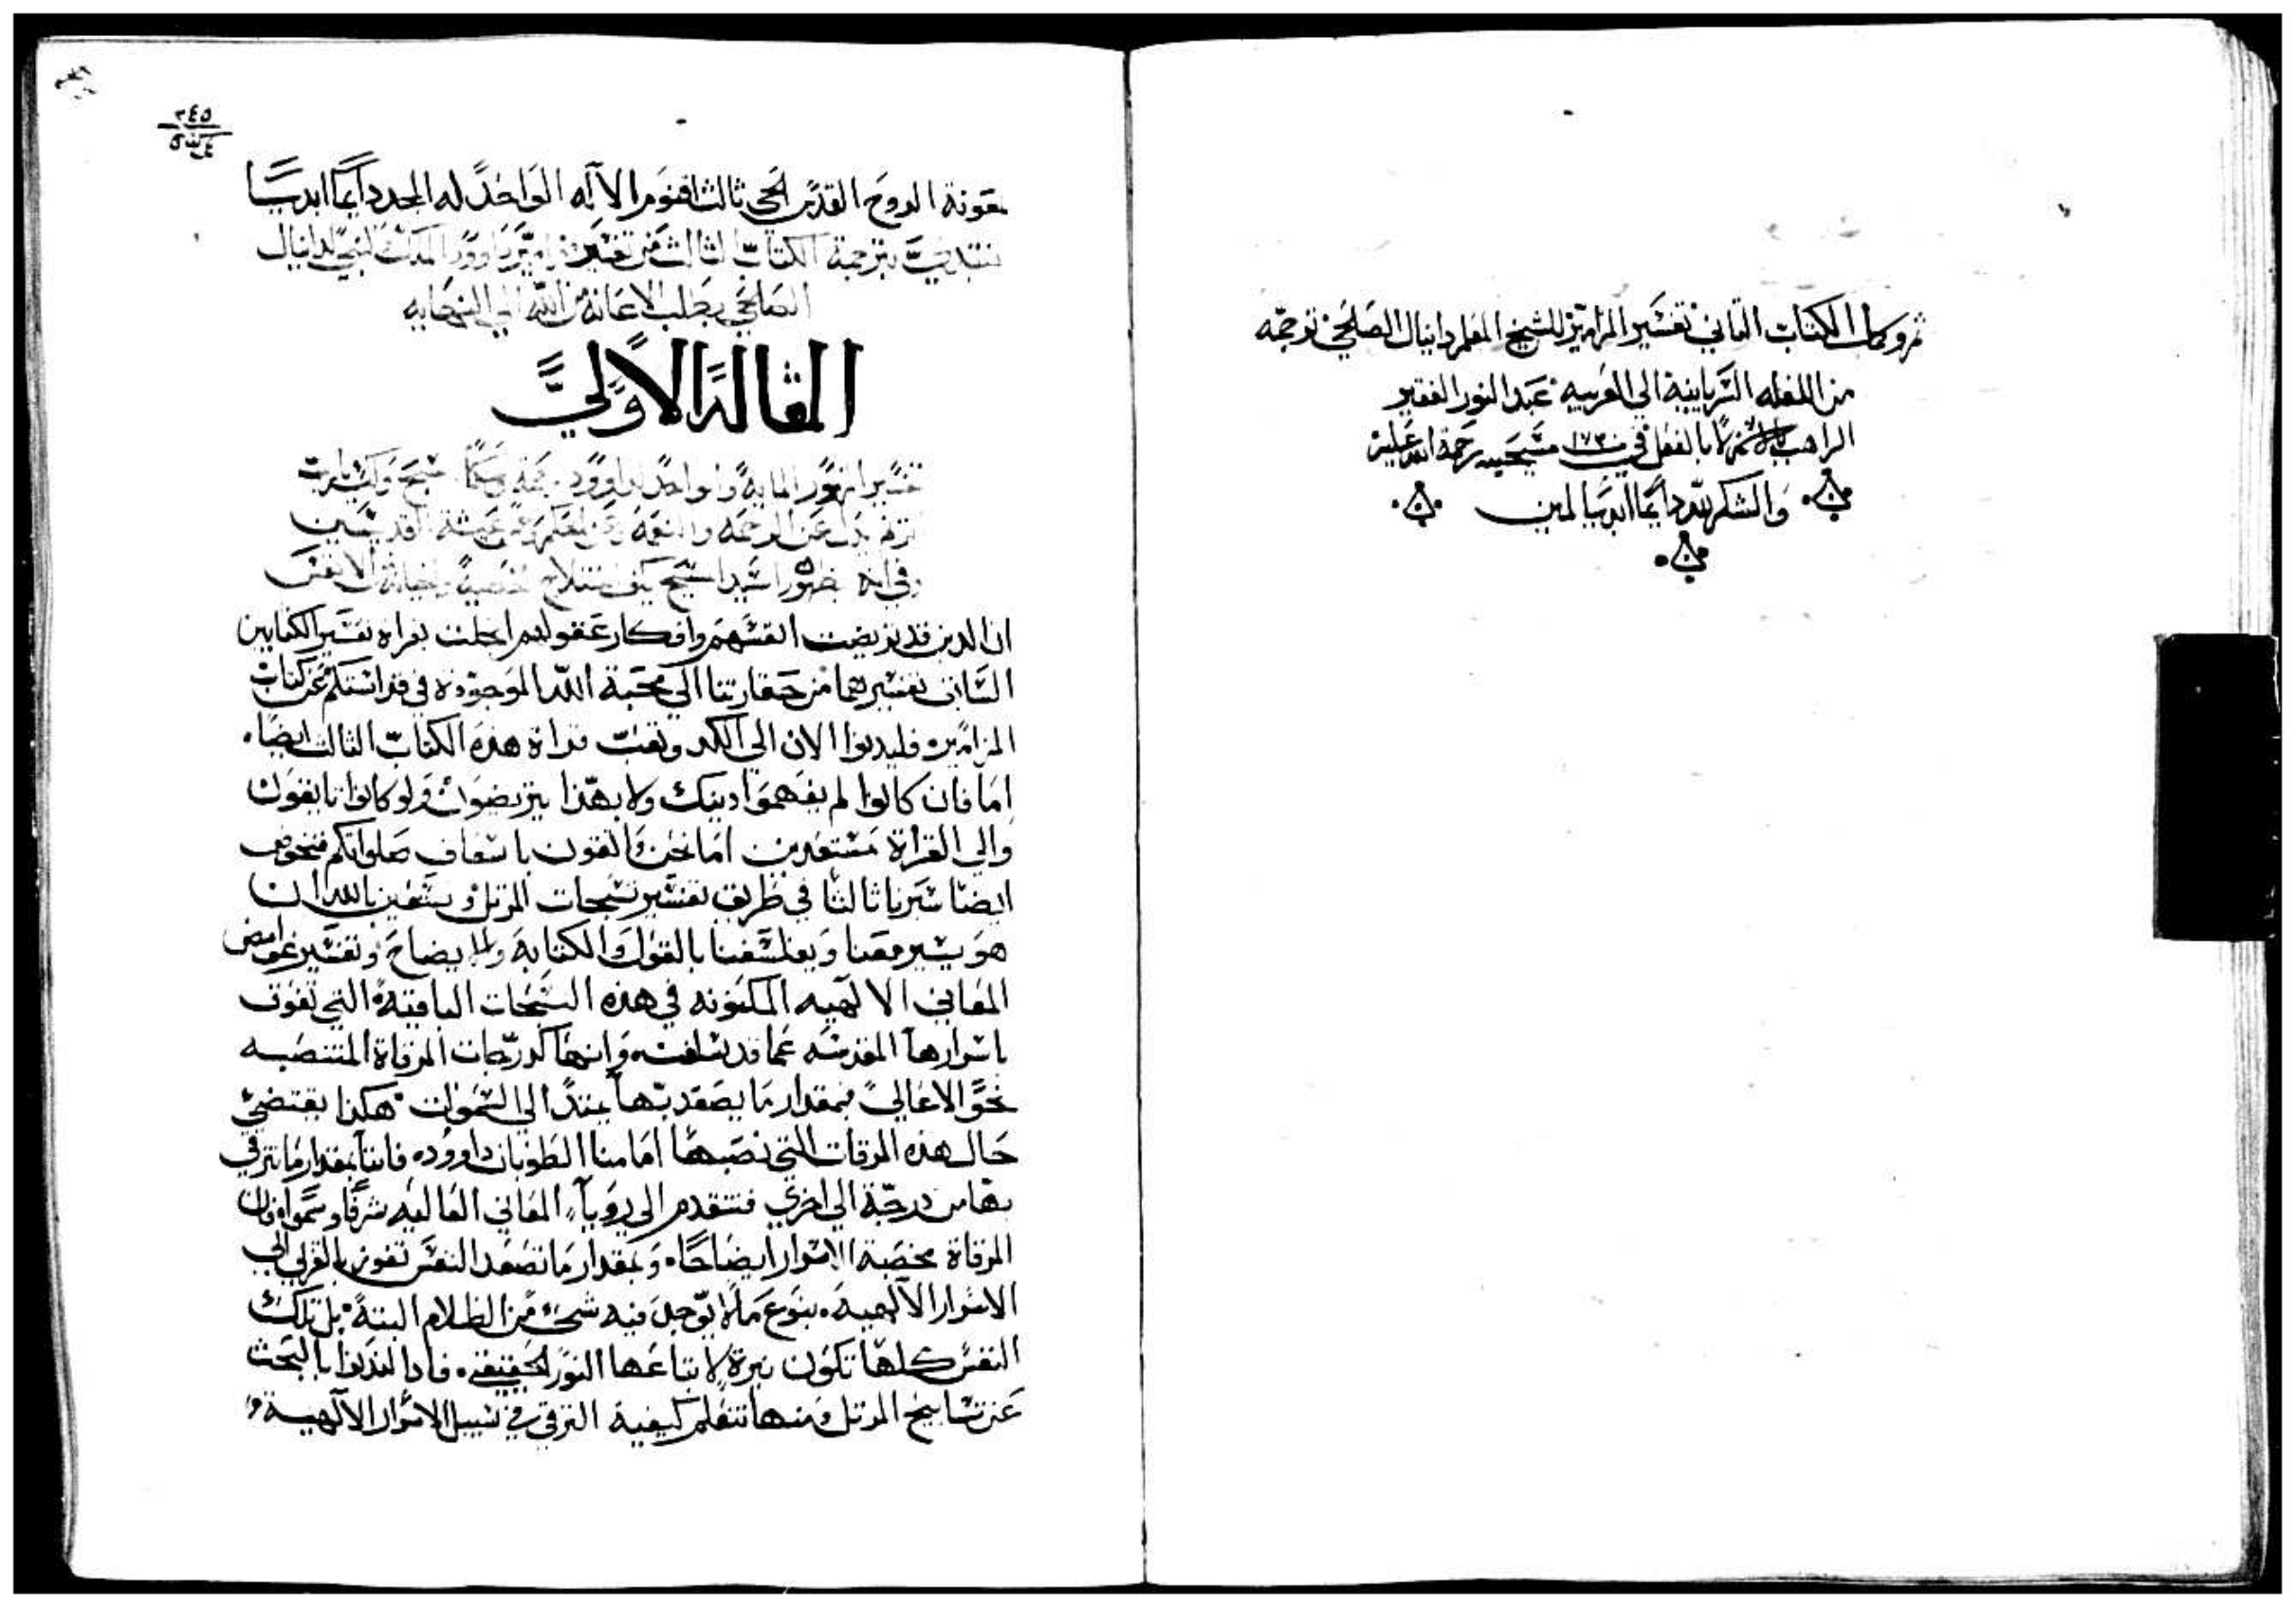 تم وكمل الكتاب الثاني تفسير المزامير للشيخ المعلم دانيال الصلحي ترجمه
من اللغله السريانية الي العربيه عبد النور الفقير
الراهب بالفعل في سنة ١٧٣٠ مسيحيه رحمة الله عليه
والشكر لله دايمًا ابديا امين
٢٤٥
بمعونة الروح القدس الحي ثالث اقنوم الاله الواحد له المجد دايمًا ابديًا
نبتدي بترجمة الكتاب الثالث من تفسير مزامير داوود الملك النبي لدانيال
الصلحي بطلب الاعانة من الله الي النهايه
المقالة الاولي
تفسير المزمور الماية والواحد لداوود
عن الرحمه
وفي انه
ان الذين قد تريضت انفسهم وافكار عقولهم انجلت بقراة تفسير الكتابين
السابق تفسيرهما من حقارتنا الي محبة الله الموجودة في فراستكم عن كتاب
المزامير فليدنوا الان الي الكد وتعب قراة هذه الكتاب الثالث ايضا.
اما فان كانوا لم يفهموا دينك ولا بهذا يتريضون ولو كانوا تايقون
والي القراة مستعدين اما نحن واثقون باسعاف صلواتكم فنخوض
ايضا سيرنا ثالثا في طريق تفسير تسبحات المرتل ونستعين بالله ان
هو يسير معنا ويفلسفنا بالقول والكتابة والايضاح وتفسير غوامض
المعاني الالهيه المكنونه في هذه التسبحات الباقية التي تفوق
باسرارها المقدسه عما قد سلفت. وانها كدرجات المرقاة المنتصبه
نحو الاعالي فبمقدار ما يصعد بها يمتد الي السموات هكذا يقتضي
حال هذه المرقات التي نصبها امامنا الطوبان داوود. فاننا بمقدار ما نترقي
بها من درجة الي اخري فنتقدم الي رويا المعاني العاليه شرفًا وسموا. فان
المرقاة مخصبة الاسرار ايضاحًا. وبمقدار ما تصعد النفس تفوز بالقرب الي
الاسرار الالهية. بنوع ما لا يوجد فيه شي من الظلام البتة بل تلك
النفس كلها تكون نيرة لاتباعها النور الحقيقي. فاذا لندنوا بالبحث
عن تسابيح المرتل ومنها نتعلم كيفية الترقي في سبيل الاسرار الالهية و